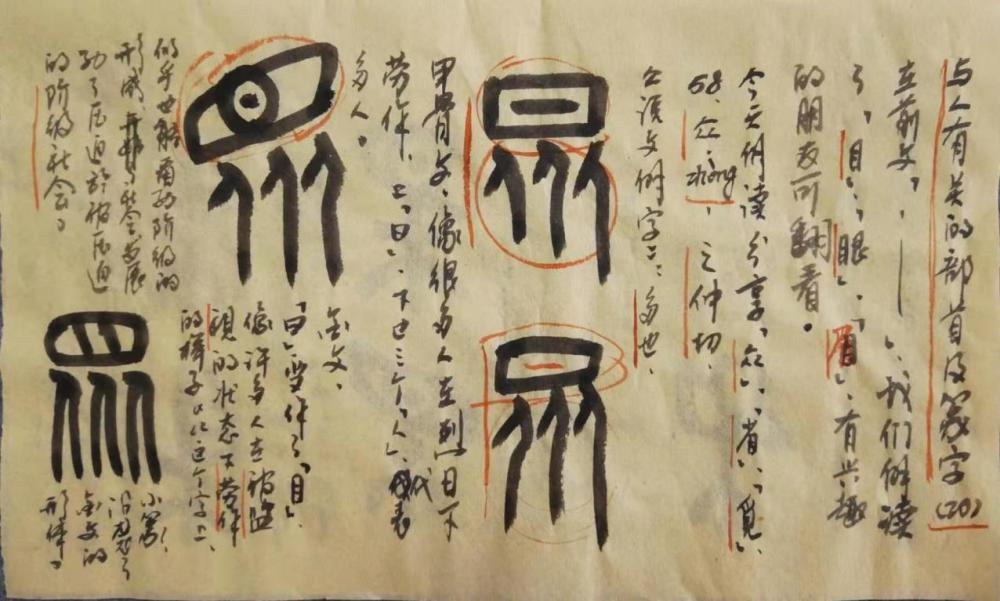 与人有关的部首及篆字(20)
在前文,我们解读
了,「目」、「眼」、「眉」,有兴趣
的朋友可翻看。
今天解读分享,「众」、「省」、「觅」、
58、众,zhòng,之仲切,
《说文解字》:多也、
甲骨文,像很多人在烈日下
劳作,上「日」,下边三个「人」,代表
多人。
金文,
「日」变作了「目」,
像许多人在被监
视的状态下劳作
的样子,从这个字上,
似乎也能看到阶级的
形成,社会发展
到了压迫于被压迫
的阶级社会。
小篆,
沿袭了
金文的
形体。